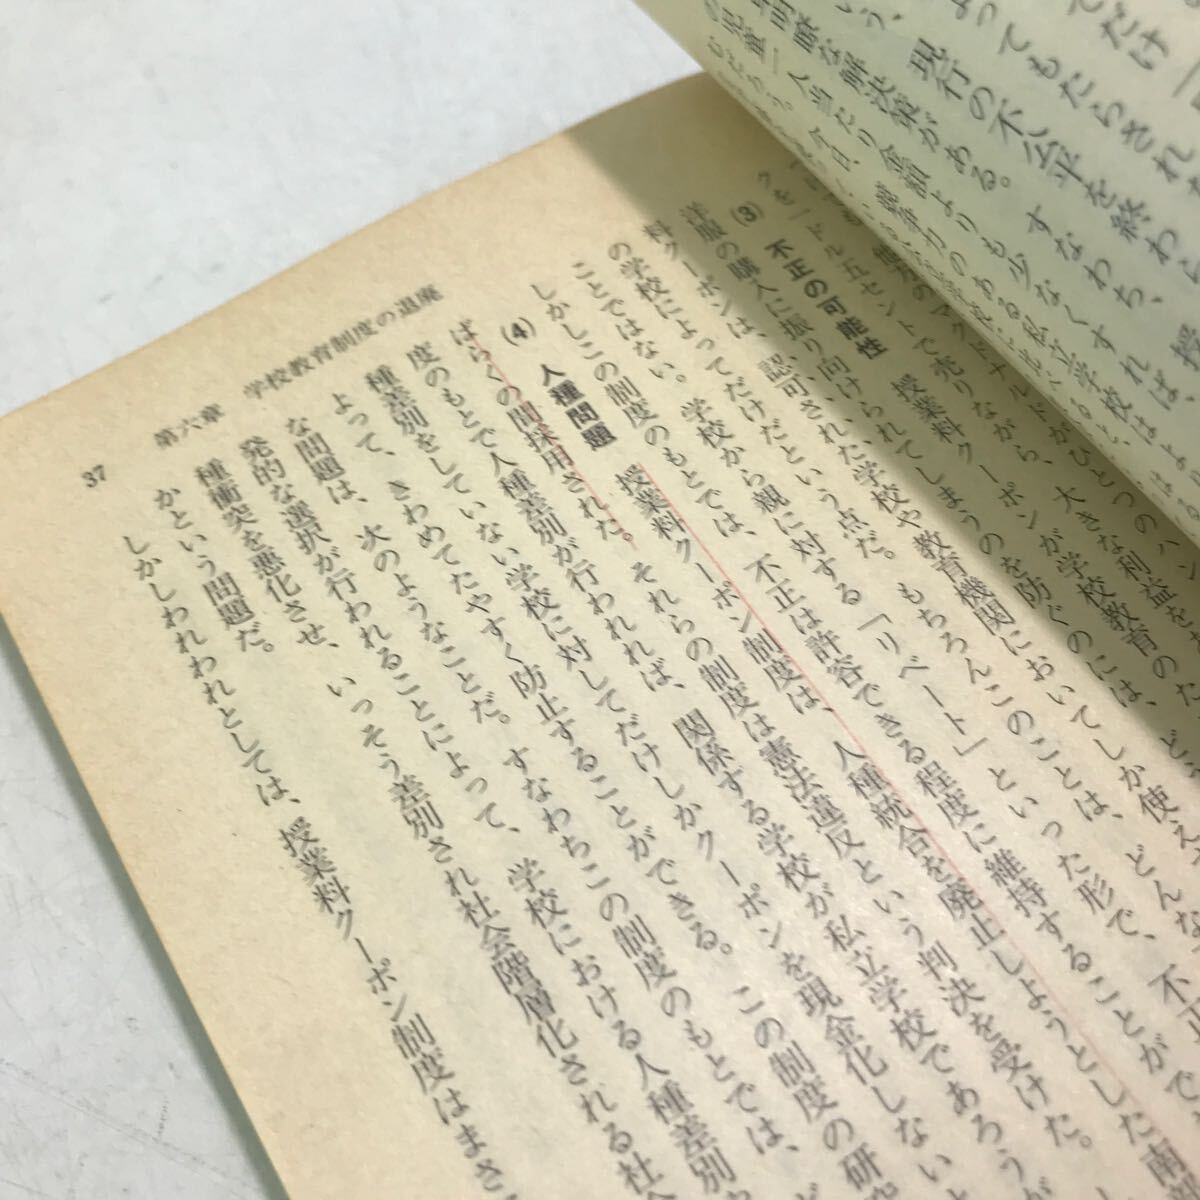 てだけ
よってもたらされ
いう、現行の不公平を終わら
可能な解決策がある。すなわち、授
の児童一人当たり金額よりも少なくすれば、
今日、競争力のある私立学校はよ
クを一ドル五セントで売りながら、大きな利益を
(3) 不正の可能性 授業料クーポンが学校教育のた
洋服の購入に振り向けられてしまうのを防ぐのには、ど
料クーポンは、認可された学校や教育機関においてしか使え
の学校によってだけだという点だ。もちろんこのことは、どんな不正
ことではない。学校から親に対する「リベート」といった形で、
しかしこの制度のもとでは、不正は許容できる程度に維持することがで
(4) 人種問題 授業料クーポン制度は、人種統合を廃止しようとした南
ばらくの間採用された。それらの制度は憲法違反という判決を受けた。
度のもとで人種差別が行われれば、関係する学校が私立学校であろうが
種差別をしていない学校に対してだけしかクーポンを現金化しない
よって、きわめてたやすく防止することができる。この制度の研究
な問題は、次のようなことだ。すなわちこの制度のもとでは、
発的な選択が行われることによって、学校における人種差別
種衝突を悪化させ、いっそう差別され社会階層化される社
かという問題だ。
しかしわれわれとしては、授業料クーポン制度はまさ
第六章 学校教育制度の退廃
37